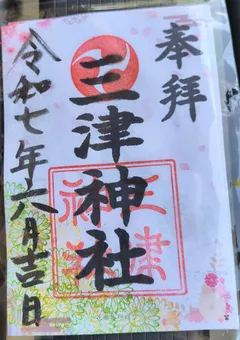 奉拝
三津神社
令和七年六月吉日
三津神社